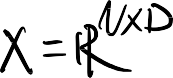 X = ℝ^{N×D}